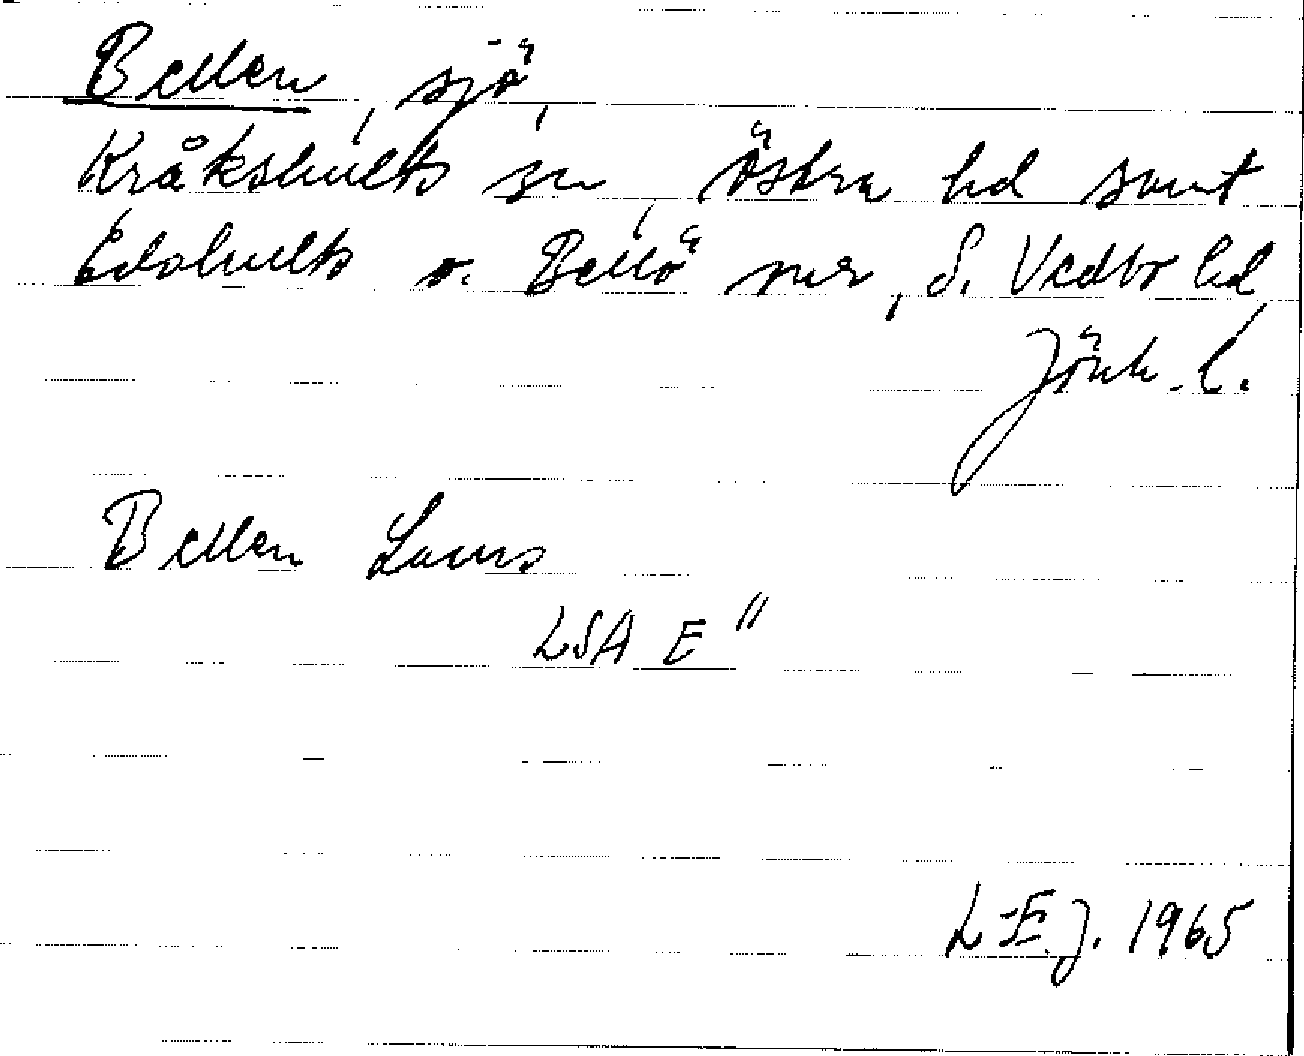 Bellen, sjö,
Kråkshults sn, Östra hd samt
Edshults o. Bellö snr, S. Vedbo hd,
Jönk. l.
Bellen
LSA E"
L-E. J. 1965